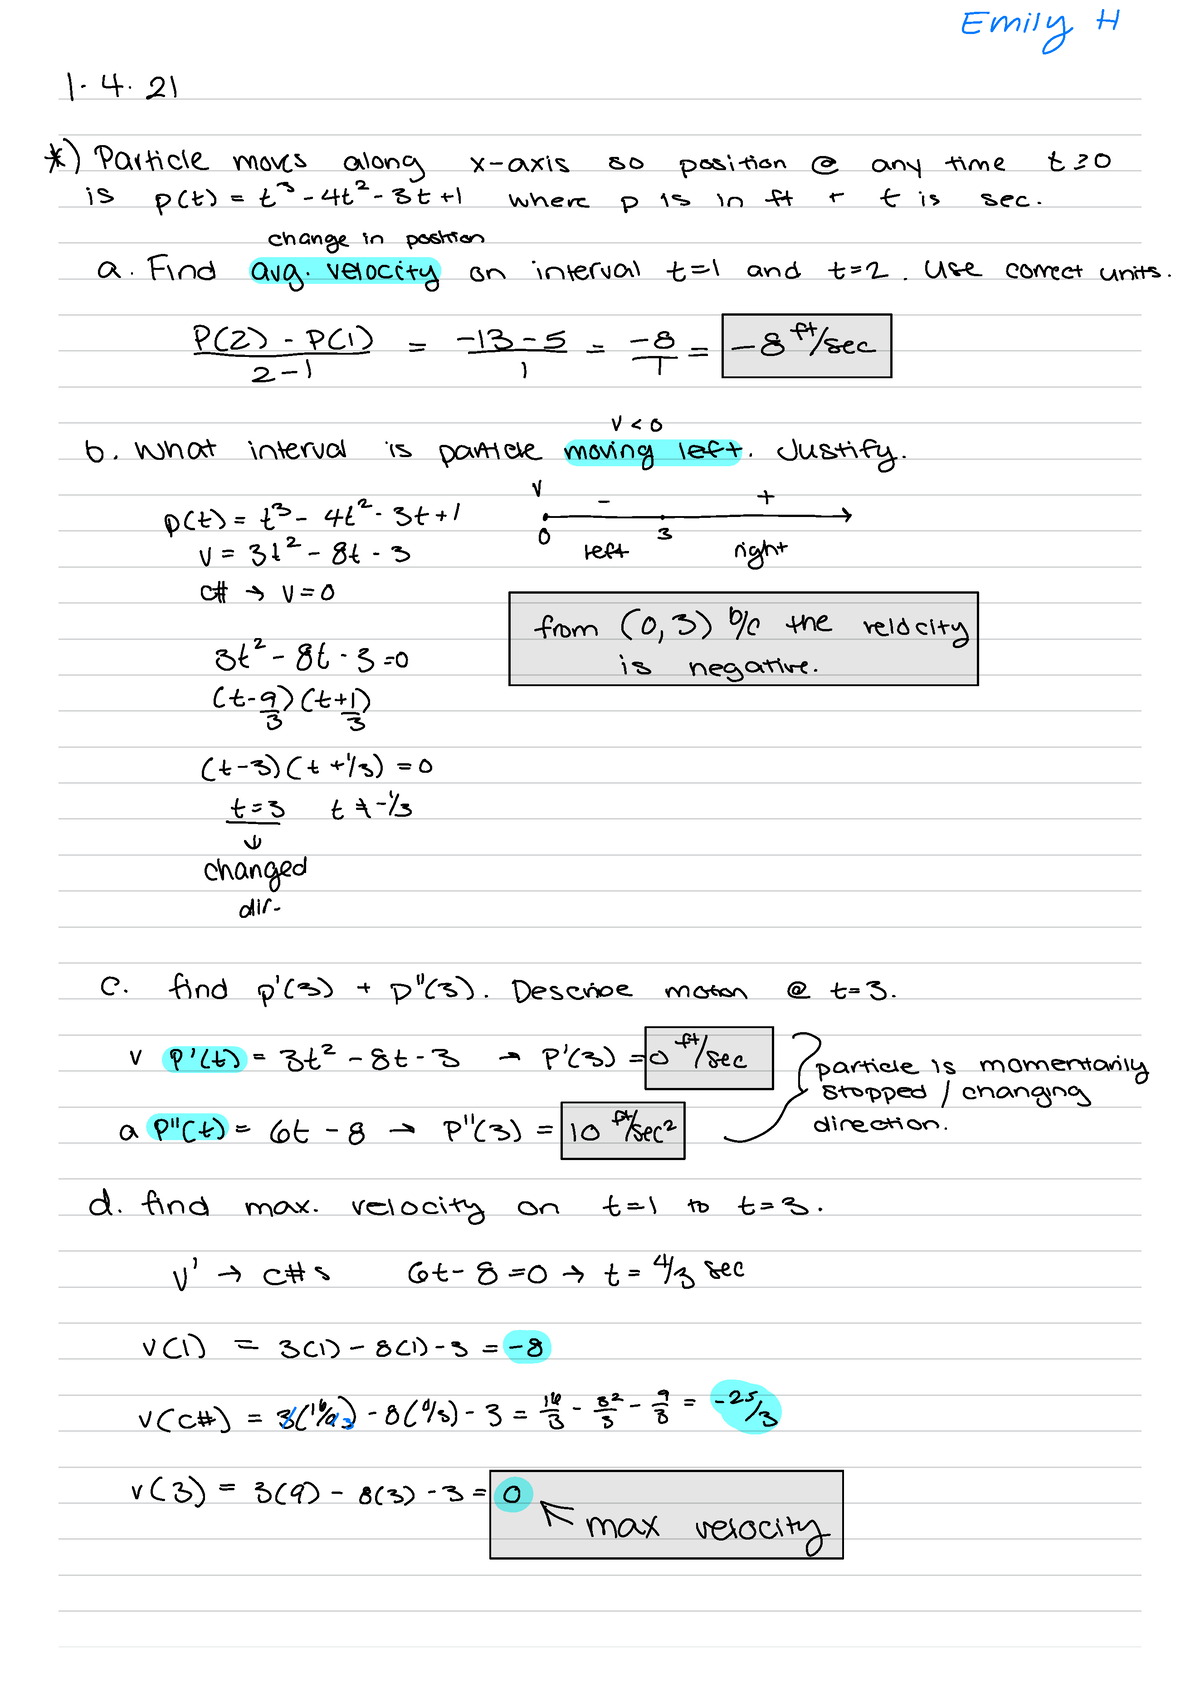 Emily H
1.4.21
*) Particle moves along x-axis so position @ any time t≥0
is p(t) = t³ - 4t² - 3t + 1 where p is in ft + t is sec.
change in position
a. Find avg. velocity on interval t=1 and t=2. Use correct units.
P(2) - P(1) / 2-1 = -13-5 / 1 = -8/1 = -8 ft/sec
v<0
b. What interval is particle moving left. Justify.
v - +
0 3
left right
p(t) = t³ - 4t² - 3t + 1
v = 3t² - 8t - 3
c# → v=0
from (0,3) b/c the velocity
is negative.
3t² - 8t - 3 = 0
(t-9/3)(t+1/3)
(t-3)(t+1/3) = 0
t=3 t≠-1/3
↓
changed
dir.
c. find p'(3) + p"(3). Describe motion @ t=3.
v p'(t) = 3t² - 8t - 3 → p'(3) = 0 ft/sec
particle is momentarily
stopped / changing
direction.
a p"(t) = 6t - 8 → p"(3) = 10 ft/sec²
d. find max. velocity on t=1 to t=3.
v' → c#s 6t-8=0 → t = 4/3 sec
v(1) = 3(1) - 8(1) - 3 = -8
v(c#) = 3(16/9 3) - 8(4/3) - 3 = 16/3 - 32/3 - 9/3 = -25/3
v(3) = 3(9) - 8(3) - 3 = 0
max velocity